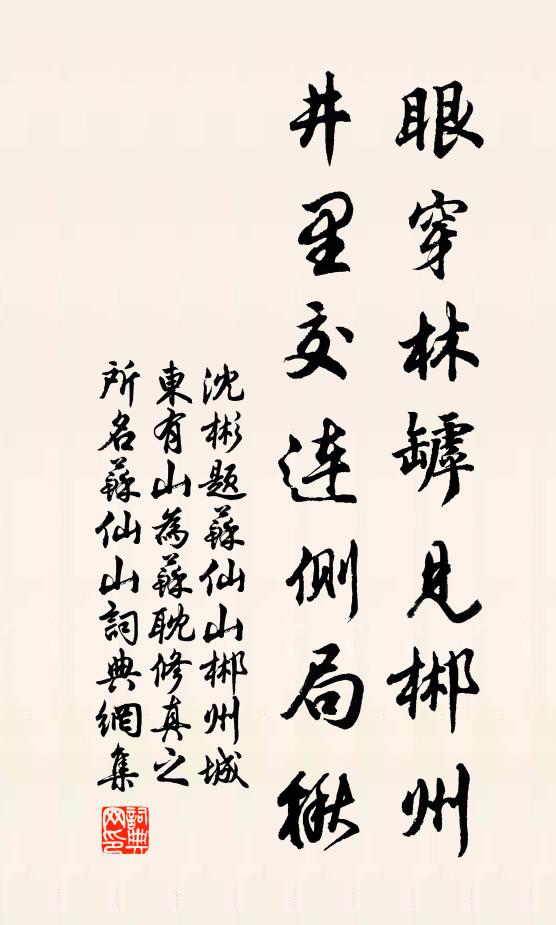 眼穿林罅見郴州
井里交連側局楸
沈彬題蘇仙山郴州城
東有山為蘇耽修真之
所名蘇仙山詞典網集
詞典
网印